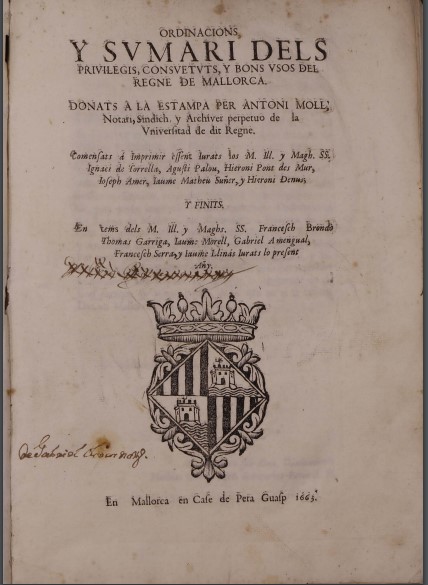 ORDINACIONS,
Y SVMARI DELS
PRIVILEGIS, CONSVETVTS, Y BONS VSOS DEL
REGNE DE MALLORCA.
DONATS A LA ESTAMPA PER ANTONI MOLL,
Notari, Sindich, y Archiver perpetuo de la
Vniversitad de dit Regne.
Comensats á Imprimir essent Iurats los M. Ill. y Magh. SS.
Ignaci de Torrella, Agusti Palou, Hieroni Pont des Mur,
Ioseph Amer, Iaume Matheu Suñer, y Hieroni Denus;
Y FINITS,
En temps dels M. Ill. y Maghs. SS. Francesch Brondo
Thomas Garriga, Iaume Morell, Gabriel Amengual,
Francesch Serra, y Iaume Llinás Iurats lo present
Any.
de Gabriel
En Mallorca en Case de Pera Guasp 1663.